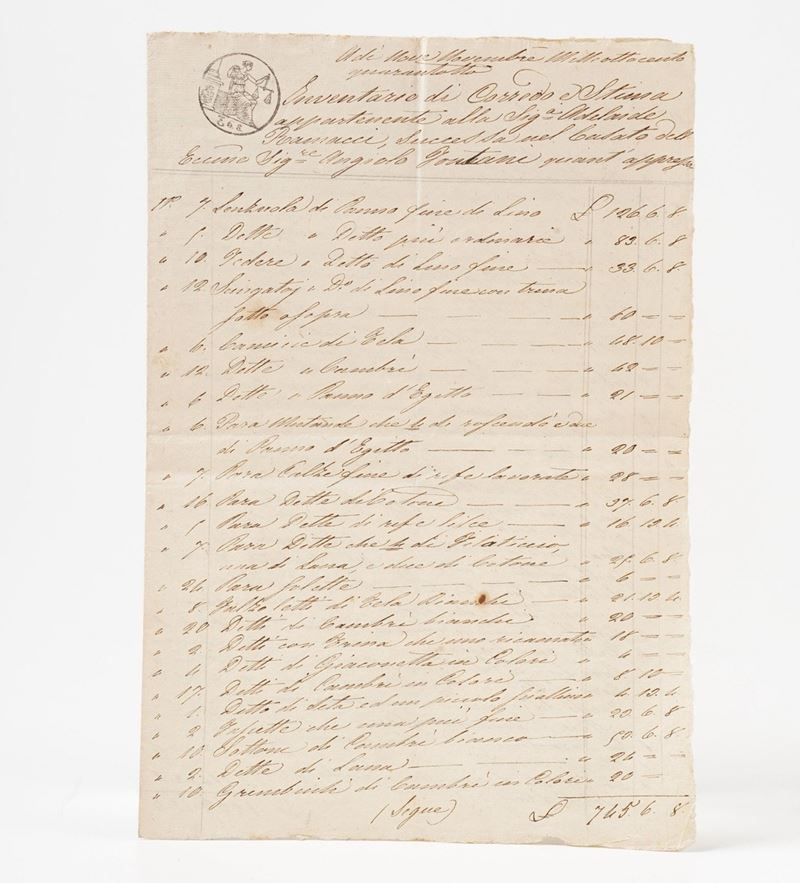 Adì Nove Novembre Mille ottocento
quarantotto
Inventario di Corredo e Stima
appartenente alla Sig.a Adelaide
Ramacci, successa nel Casato dell'
Eccmo Sig.re Angiolo Fontani quant'appresso
N.o 7. Lenzuola di Panno fine di Lino £ 126. 6. 8
" 5. Dette " Detto più ordinarie " 83. 6. 8
" 10. Federe " Detto di Lino fine — " 33. 6. 8
" 12. Sciugatoj " D.o di Lino fine con trina
fatto a sopra — " 60 — —
" 6. Camicie di Tela — " 48. 10 —
" 12. Dette " Cambrì — " 62 — —
" 6 Dette " Panno d'Egitto — " 21 — —
" 6. Para Mutande che 4 di e due
di Panno d'Egitto — " 20 — —
" 7. Para Calze fine di refe lavorate " 28 — —
" 16 Para Dette di Cotone — " 37. 6. 8
" 5 Para Dette di refe lisce — " 16. 13. 4
" 7. Para Dette che 4 di Filaticcio,
una di Lana, e due di Cotone " 25. 6. 8
" 24 Para Solette — " 6 — —
" 8. Fazzoletti di Tela Bianchi — " 21. 13. 4
" 20 Detti di Cambrì bianchi — " 20 — —
" 2. Detti con Trina che uno ricamato " 18 — —
" 4. Detti di Giaconetta in Colori — " 4 — —
" 17. Detti di Cambrì in Colori — " 8. 10 —
" 1. Detto di Seta ed un piccolo " 4. 13. 4
" 2 che una più fine — " 23. 6. 8
" 10. Sottane di Cambrì bianco — " 50. 6. 8
" 2. Dette di Lana — " 24 — —
" 10. Grembiuli di Cambrì in Colori " 20 —
(Segue) £ 745. 6. 8.